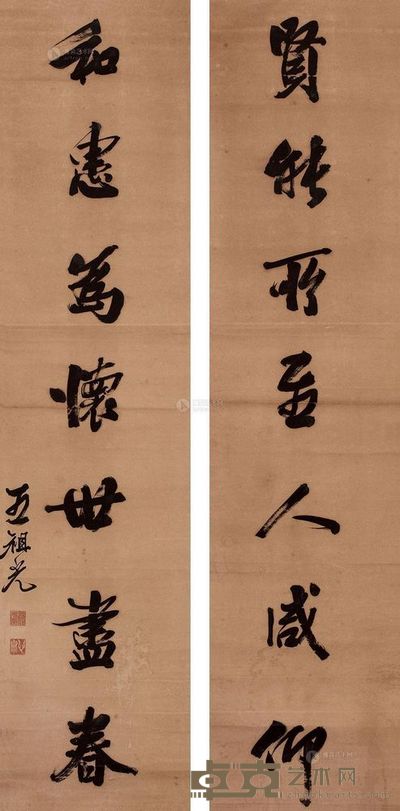 賢能所至人咸仰
和惠為懷世盡春
王祖光
卓克艺术网